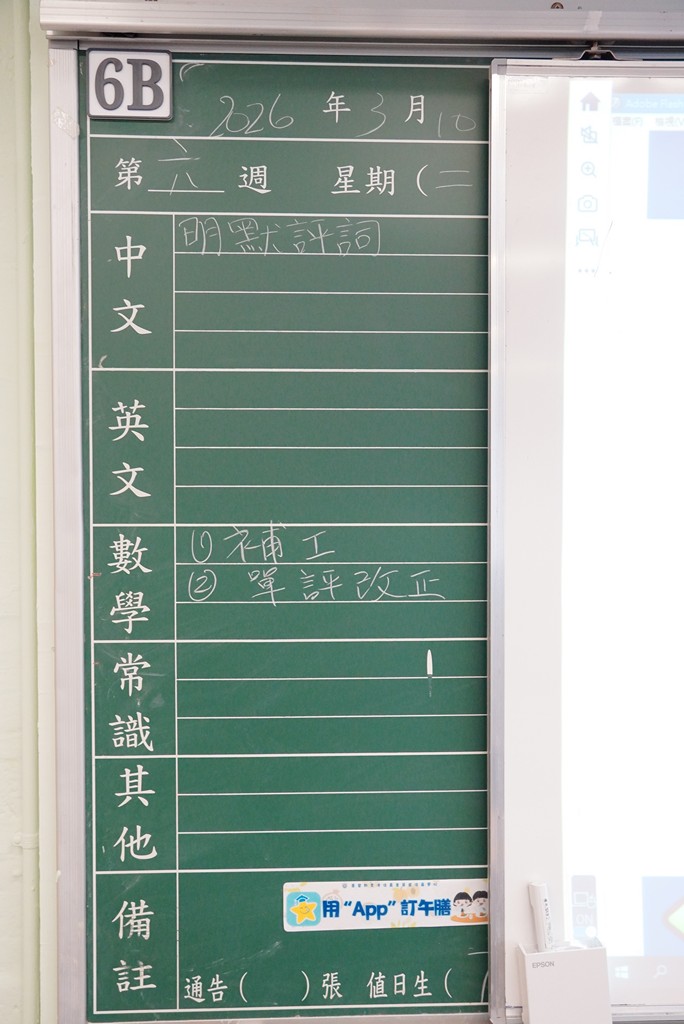 6B
2026 年 3 月 10
第 六 週 星期 ( 二
中文
明默評詞
英文
數學
① 補工
② 單評改正
常識
其他
備註
用 “App” 訂午膳
通告 ( ) 張 值日生 (
EPSON